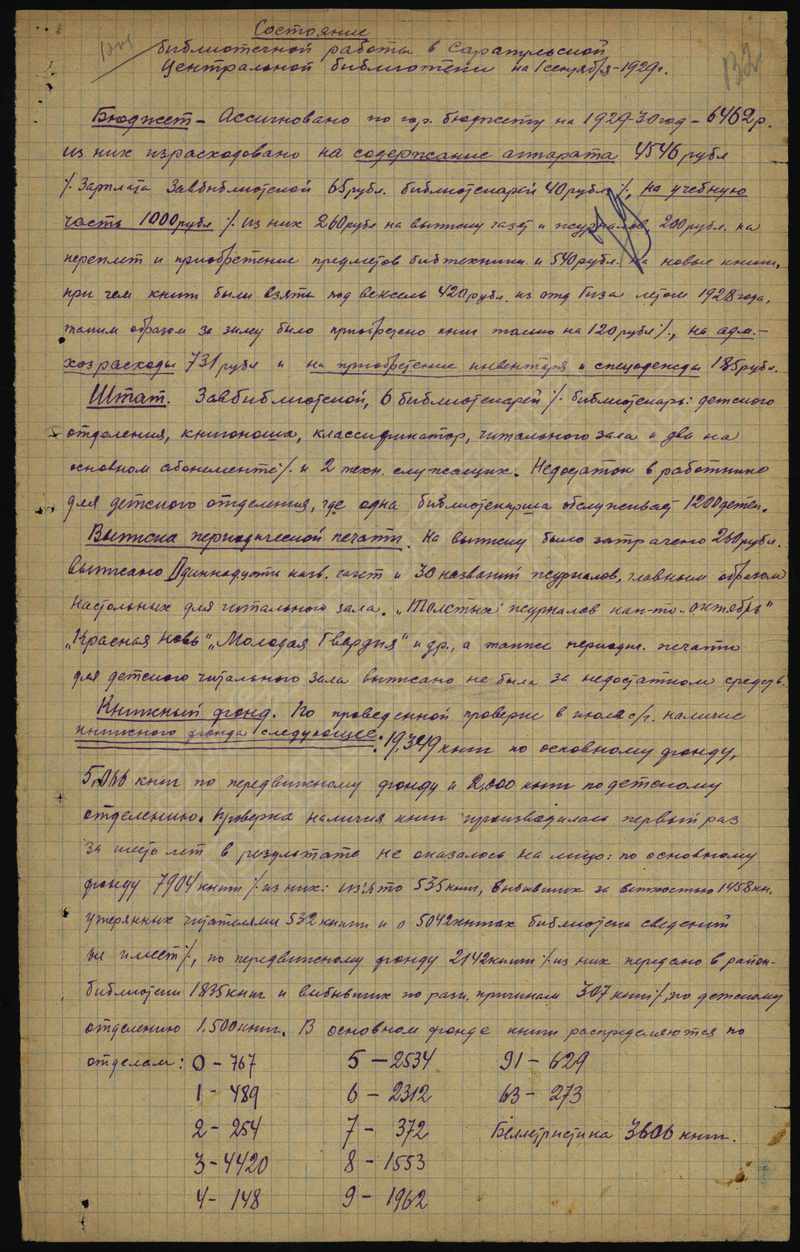 Состояние
библиотечной работы в Сарапульской
Центральной библиотеки на 1 сентября-1929г.
132
Бюджет – Ассигновано по гор. бюджету на 1929-30 год – 6462 р.
из них израсходовано на содержание аппарата 4546 рубл
/. Зарплата Завбиблиотекой 65 рубл. библиотекарей 40 рубл. /., на учебную
часть 1000 рубл /. из них 260 рубл на выписку газет и журналов, 200 рубл. на
переплет и приобретение предметов библтехники и 540 рубл. на новые книги,
при чем книги были взяты под вексель 420 рубл. из отд Гиза летом 1928 года,
таким образом за зиму было приобретено книг только на 120 рубл /., на адм.-
хоз расходы 731 рубл и на приобретение инвентаря и спецодежды 185 рубл.
Штат. Завбиблиотекой, 6 библиотекарей /. библиотекарь: детского
отделения, книгоноша, классификатор, читального зала и два на
основном абонементе /. и 2 техн. служащих. Недостаток в работнике
для детского отделения, где одна библиотекарша обслуживает 1200 детей.
Выписка периодической печати. На выписку было затрачено 260 рубл.
Выписано Одиннадцать назв. газет и 30 названий журналов, главным образом
настольных для читального зала. „Толстых" журналов как-то-„Октябрь"
„Красная Новь" „Молодая Гвардия" и др., а также периодич. печати
для детского читального зала выписано не было за недостатком средств.
Книжный фонд. По проведенной проверке в июле с/г. наличие
книжного фонда следующее: 19,329 книг по основному фонду,
5,066 книг по передвижному фонду и 2,000 книг по детскому
отделению. Проверка наличия книг производилась первый раз
за шесть лет в результате не оказалось на лицо: по основному
фонду 7904 книги /. из них: изъято 535 книг, выбывших за ветхостью 1458 кн.
утерянных читателями 532 книги и о 5042 книгах библиотека сведений
не имеет /., по передвижному фонду 2142 книги /. из них передано в район-
библиотеки 1835 книг и выбывших по разн. причинам 307 книг /., по детскому
отделению 1.500 книг. В основном фонде книги распределяются по
отделам: 0 – 767 5 – 2534 91 – 629
1 – 489 6 – 2312 63 – 273
2 – 254 7 – 372 Беллетристика 3606 книг.
3 – 4420 8 – 1553
4 – 148 9 – 1962